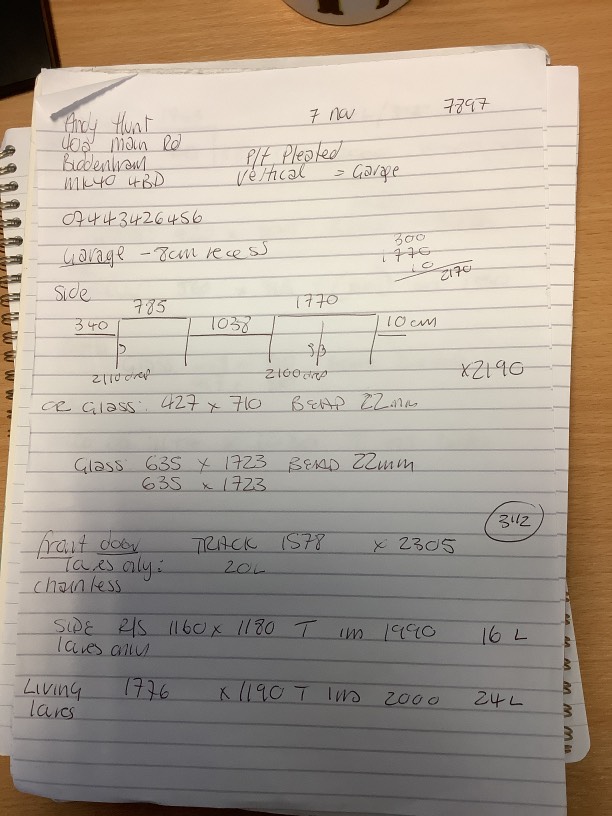 Andy Hunt 7 Nov 7897
402 Main Rd
Biddenham P/f Pleated
MK40 4BD Vertical = Garage
07443426456
Garage - 8cm recess
300
1770
10
2170
Side
785 1770
340 1038 10cm
2110 drop 2100 drop
x2190
OR Glass: 427 x 710 BEAD 22mm
Glass 635 x 1723 BEAD 22mm
635 x 1723
342
front door TRACK 1578 x 2305
20L
chainless
SIDE R/S 1160 x 1180 T 1990 16 L
Living 1776 x 1190 T 2000 24L